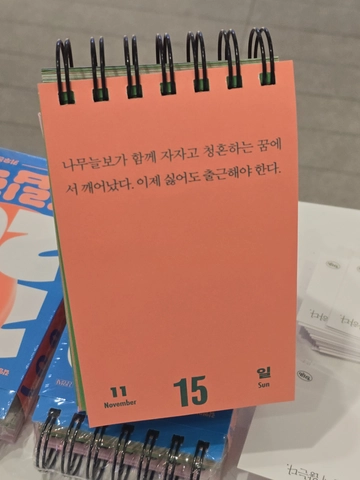 나무늘보가 함께 자자고 청혼하는 꿈에
서 깨어났다. 이제 싫어도 출근해야 한다.
11
November
15
일
Sun